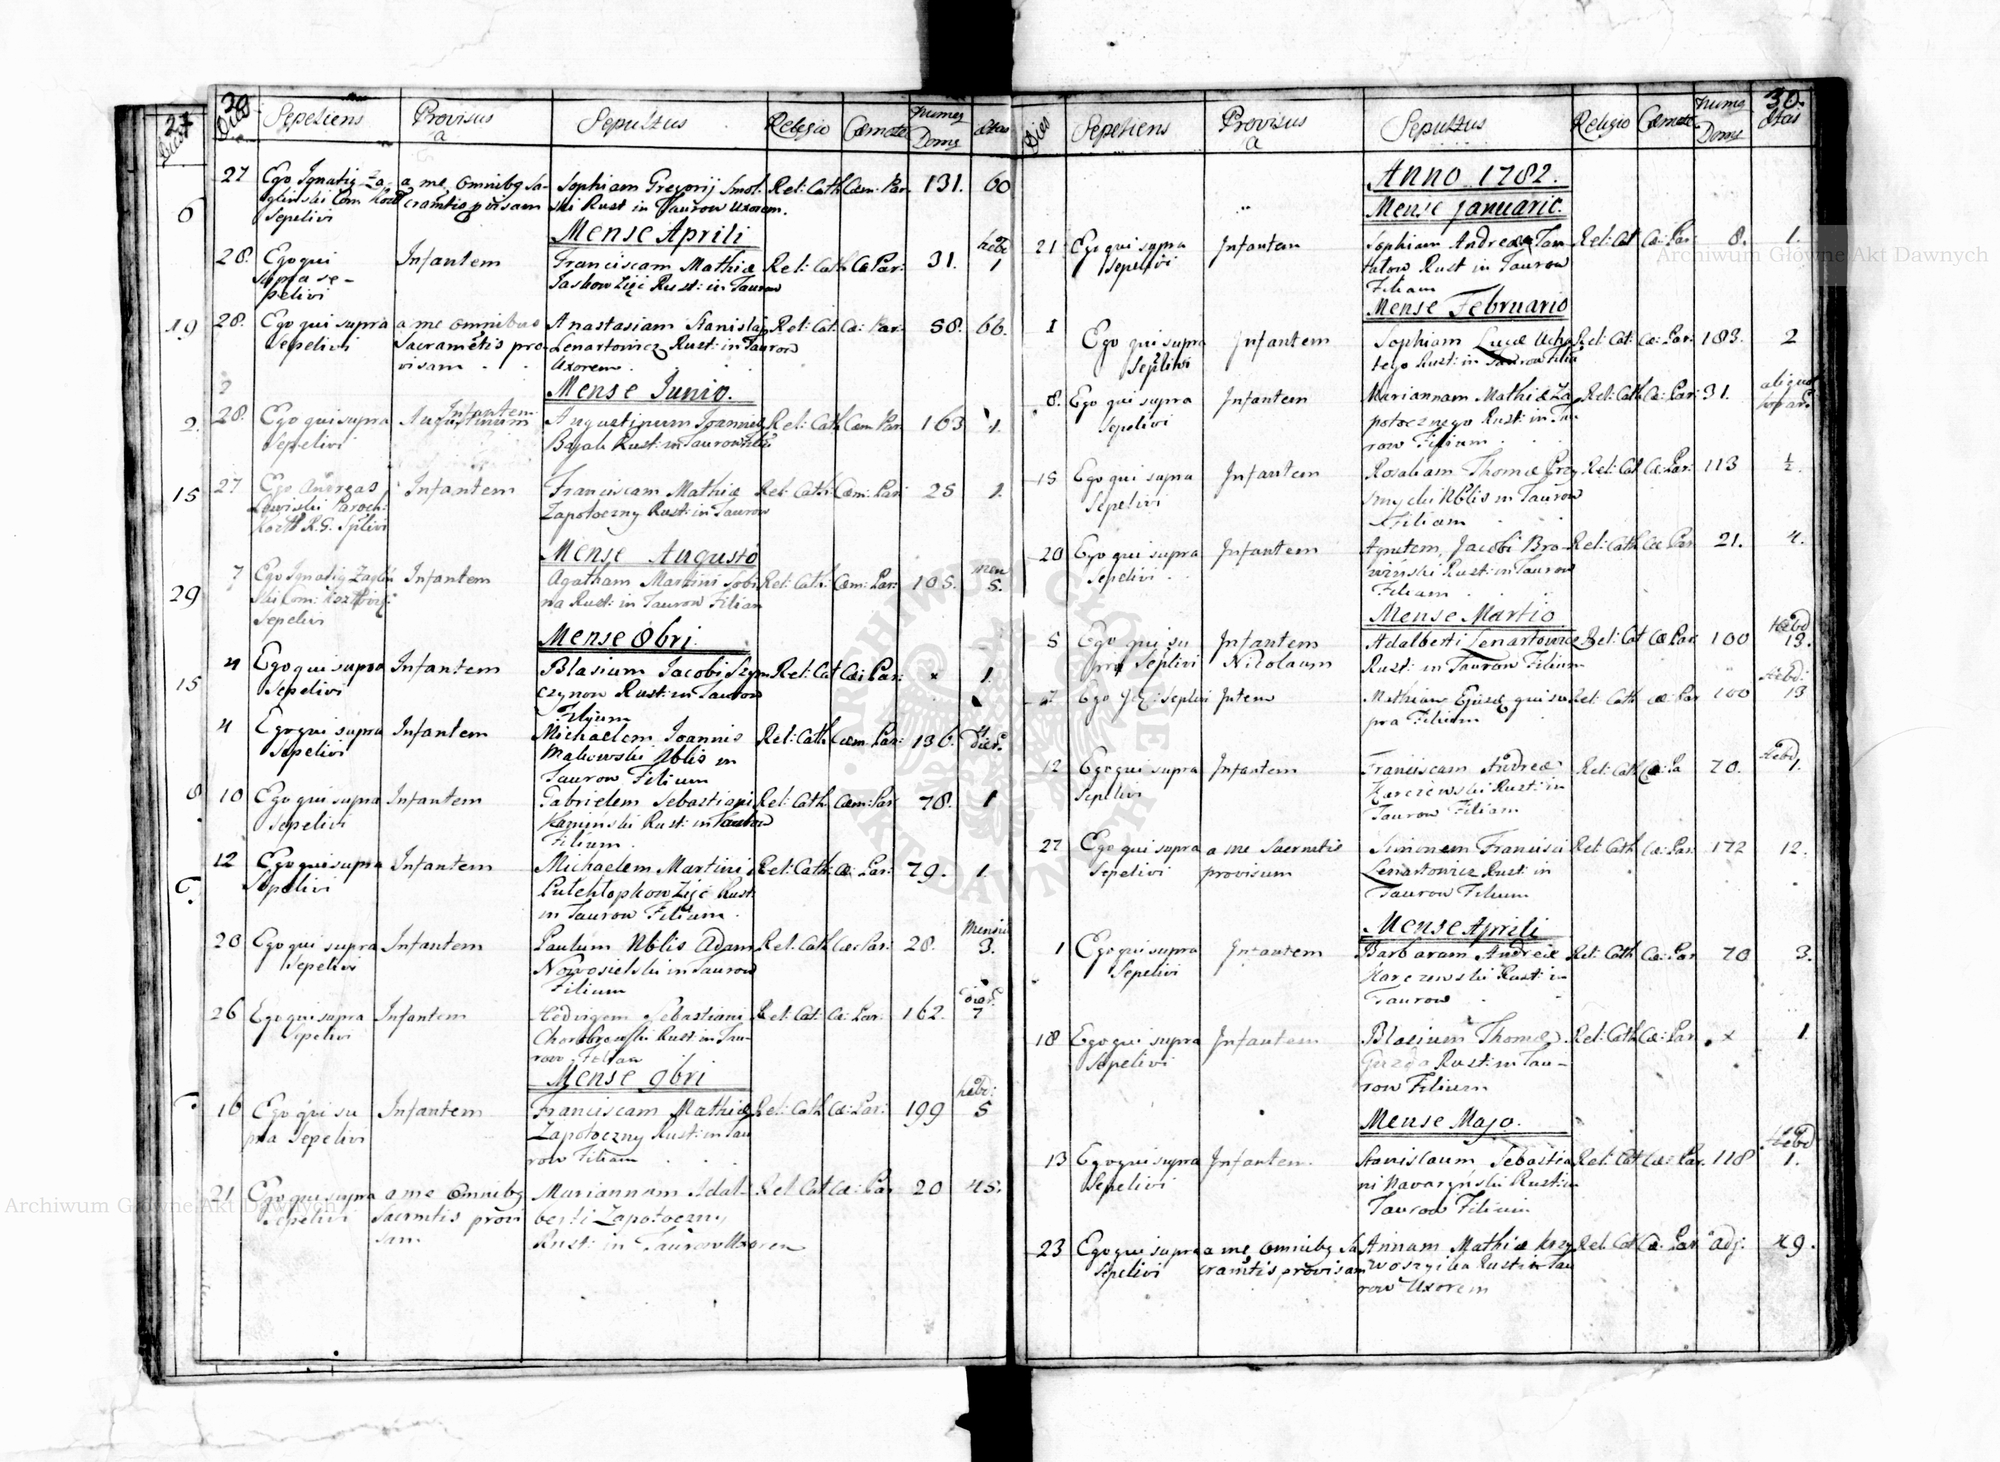 27
Dies
6
19
2.
15
29
15
8
29
Dies Sepeliens Provisus a Sepultus Religio Cæmete Numeq Domq ætas
27 Ego Ignatiq Za a me omnibq Sa Sophiam Gregorij Smol Rel: Cath Cæm: Par 131. 60
Com cramtis pvisam ski Rust in Taurow Uxorem.
Sepelivi
Mense Aprili
28. Ego qui Infantem Franciscam Mathiæ Rel: Cath Cæ Par: 31. hebd 1
supra se- Rust: in Taurow
pelivi
28. Ego qui supra a me omnibus Anastasiam Stanislai Rel: Cat: Cæ: Par: 58. 66.
Sepelivi Sacrametis pro Lenartowicz Rust: in Taurow
visam Uxorem.
Mense Junio.
28. Ego qui supra Infantem Augustinum Joannis Rel: Cath Cæm Par 163 1.
Sepelivi Augustinum Rust: in Taurow
27 Ego Andreas Infantem Franciscam Mathiæ Rel: Cath: Cæm: Par: 25 1.
Paroch: Zapotoczny Rust: in Taurow
Mense Augusto
7 Ego Ignatiq Infantem Agatham Martini Rel: Cath. Cæm: Par: 105. men 5.
Rust: in Taurow Filiam
Sepelivi
Mense 8bri.
4 Ego qui supra Infantem Blasium Jacobi Rel: Cat Cæ: Par: x 1.
Sepelivi Rust: in Taurow
Filium
4 Ego qui supra Infantem Michaelem Joannis Rel: Cath Cæm: Par: 136. dier:
Sepelivi Makowski Nblis in
Taurow Filium
10 Ego qui supra Infantem Gabrielem Sebastiani Rel: Cath. Cæm: Par 78. 1
Sepelivi Kaminski Rust: in Taurow
Filium.
12 Ego qui supra Infantem Michaelem Martini Rel: Cath: Cæ: Par: 79. 1.
Sepelivi Rust:
in Taurow Filium.
20 Ego qui supra Infantem Paulum Nblis Adam Rel: Cath Cæ: Par: 28. 3.
Sepelivi Nowosielski in Taurow
Filium
26 Ego qui supra Infantem Hedvigem Sebastiani Rel: Cat: Cæ: Par: 162. dier: 7
Sepelivi Rust: in Tau-
row Filiam
Mense 9bri
16 Ego qui su Infantem Franciscam Mathiæ Rel: Cath Cæ: Par: 199 hebd: 5
pra Sepelivi Zapotoczny Rust: in Tau
row Filiam
21 Ego qui supra a me omnibq Mariannam Adal- Rel: Cat Cæ: Par 20 45.
Sepelivi Sacramtis provi berti Zapotoczny
sam Rust: in Taurow Uxorem
30.
Dies Sepeliens Provisus a Sepultus Religio Cæmete Numeq Domq ætas
Anno 1782.
Mense Januario.
21 Ego qui supra Infantem Sophiam Andreæ Rel: Cat Cæ: Par: 8. 1.
Sepelivi Rust in Taurow
Filiam
Mense Februario
1 Ego qui supra Infantem Sophiam Lucæ Rel: Cat: Cæ: Par: 183. 2
Sepelivi Rust: in Taurow Filia
8. Ego qui supra Infantem Mariannam Mathiæ Za Rel: Cath Cæ: Par: 31.
Sepelivi potocznego Rust: in Tau
row Filiam
15 Ego qui supra Infantem Rosaliam Thomæ Rel: Cat Cæ: Par: 113 1/2.
Sepelivi Nblis in Taurow
Filiam
20 Ego qui supra Infantem Agnetem Jacobi Bro- Rel: Cath Cæ Par 21. 4.
Sepelivi Rust: in Taurow
Filiam
Mense Martio
5 Ego qui su Infantem Adalberti Lenartowicz Rel: Cat Cæ Par 100 Hebd 13.
pra Sepelivi Nicolaum Rust: in Taurow Filium
Mathiam Ejusdq qui su Rel: Cath Cæ Par 100 Hebd: 13
pra Filium
12 Ego qui supra Infantem Franciscam Andreæ Rel: Cath Cæ: Pa 70. Hebd 1.
Sepelivi Karczewski Rust: in
Taurow Filiam
27 Ego qui supra a me Sacrmtis Simonem Francisci Rel: Cath Cæ: Par: 172 12.
Sepelivi provisum Lenartowicz Rust: in
Taurow Filium
Mense Aprili
1 Ego qui supra Infantem Barbaram Andreæ Rel: Cath Cæ: Par 70 3.
Sepelivi Karczewski Rust: in
Taurow
18 Ego qui supra Infantem Blasium Thomæ Rel: Cath Cæ: Par. x 1.
Sepelivi Rust: in Tau-
row Filium
Mense Majo.
13 Ego qui supra Infantem. Stanislaum Sebastia Rel: Cat Cæ: Par. 118 Hebd 1.
Sepelivi ni Rust: in
Taurow Filium
23 Ego qui supra a me omnibq Sa Annam Mathiæ Rel: Cat Cæ: Par adj: 49.
Sepelivi cramtis provisam Rust: in Tau
row Uxorem
Archiwum Główne Akt Dawnych
Archiwum Główne Akt Dawnych
ARCHIWUM GŁÓWNE AKT DAWNYCH